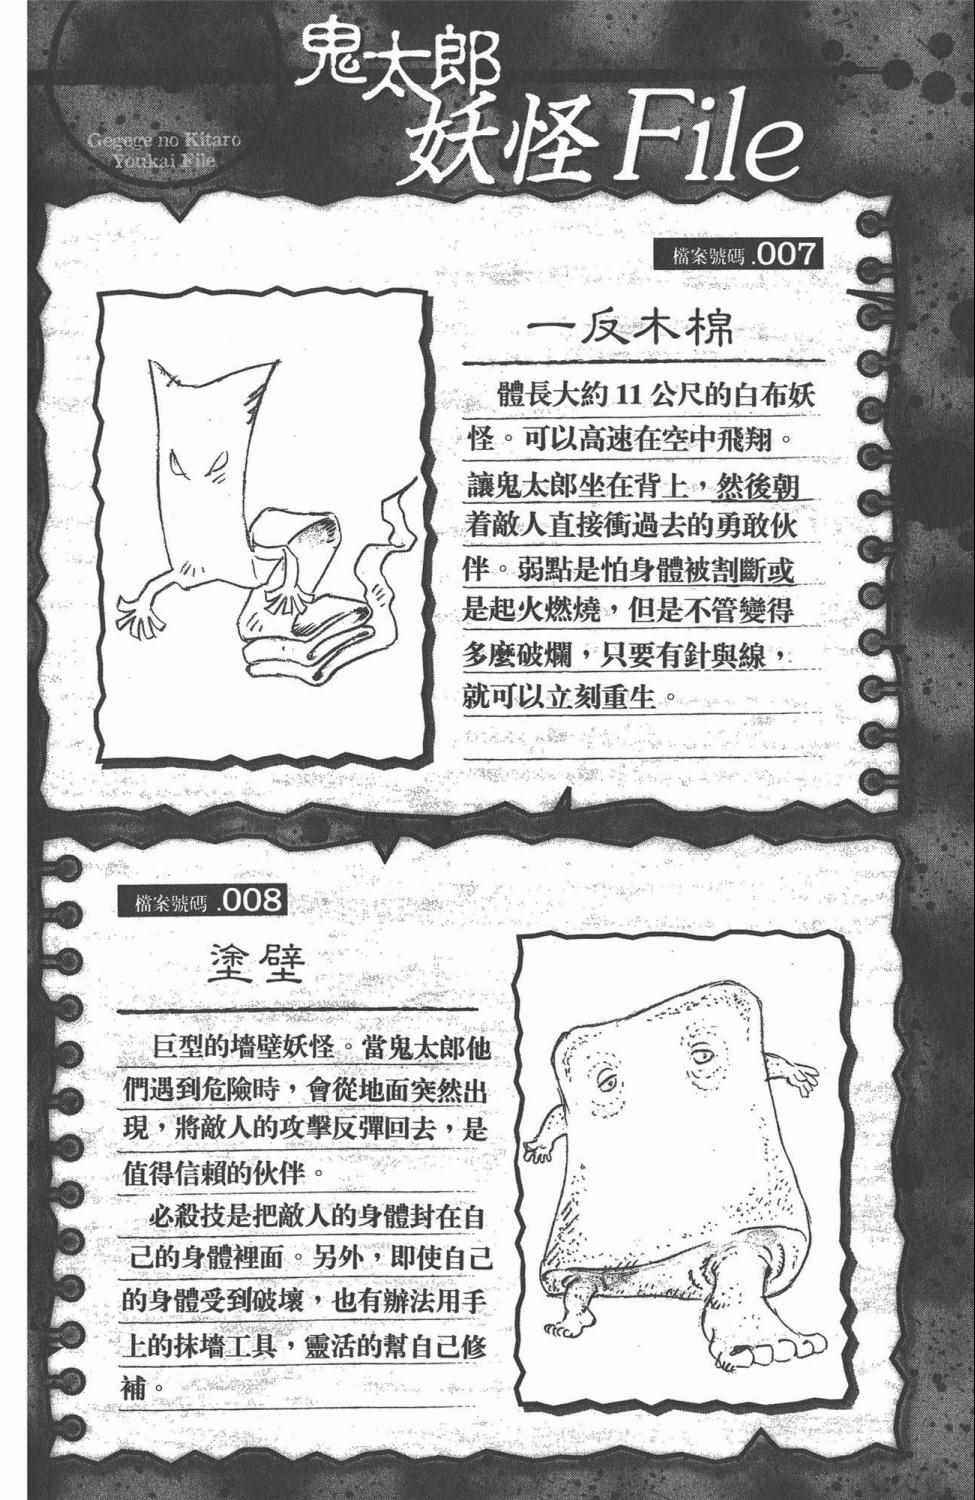 鬼太郎
妖怪File
Gegege no Kitaro
Youkai File
檔案號碼.007
一反木棉
體長大約11公尺的白布妖
怪。可以高速在空中飛翔。
讓鬼太郎坐在背上，然後朝
着敵人直接衝過去的勇敢伙
伴。弱點是怕身體被割斷或
是起火燃燒，但是不管變得
多麼破爛，只要有針與線，
就可以立刻重生。
檔案號碼.008
塗壁
巨型的墻壁妖怪。當鬼太郎他
們遇到危險時，會從地面突然出
現，將敵人的攻擊反彈回去，是
值得信賴的伙伴。
必殺技是把敵人的身體封在自
己的身體裡面。另外，即使自己
的身體受到破壞，也有辦法用手
上的抹墻工具，靈活的幫自己修
補。